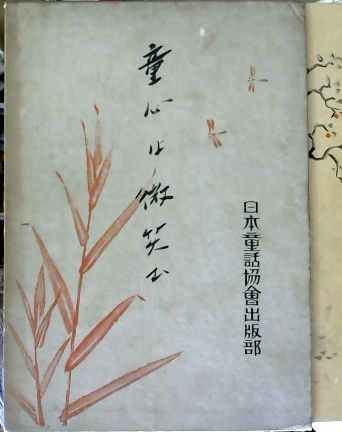 童心は微笑む
日本童話協會出版部